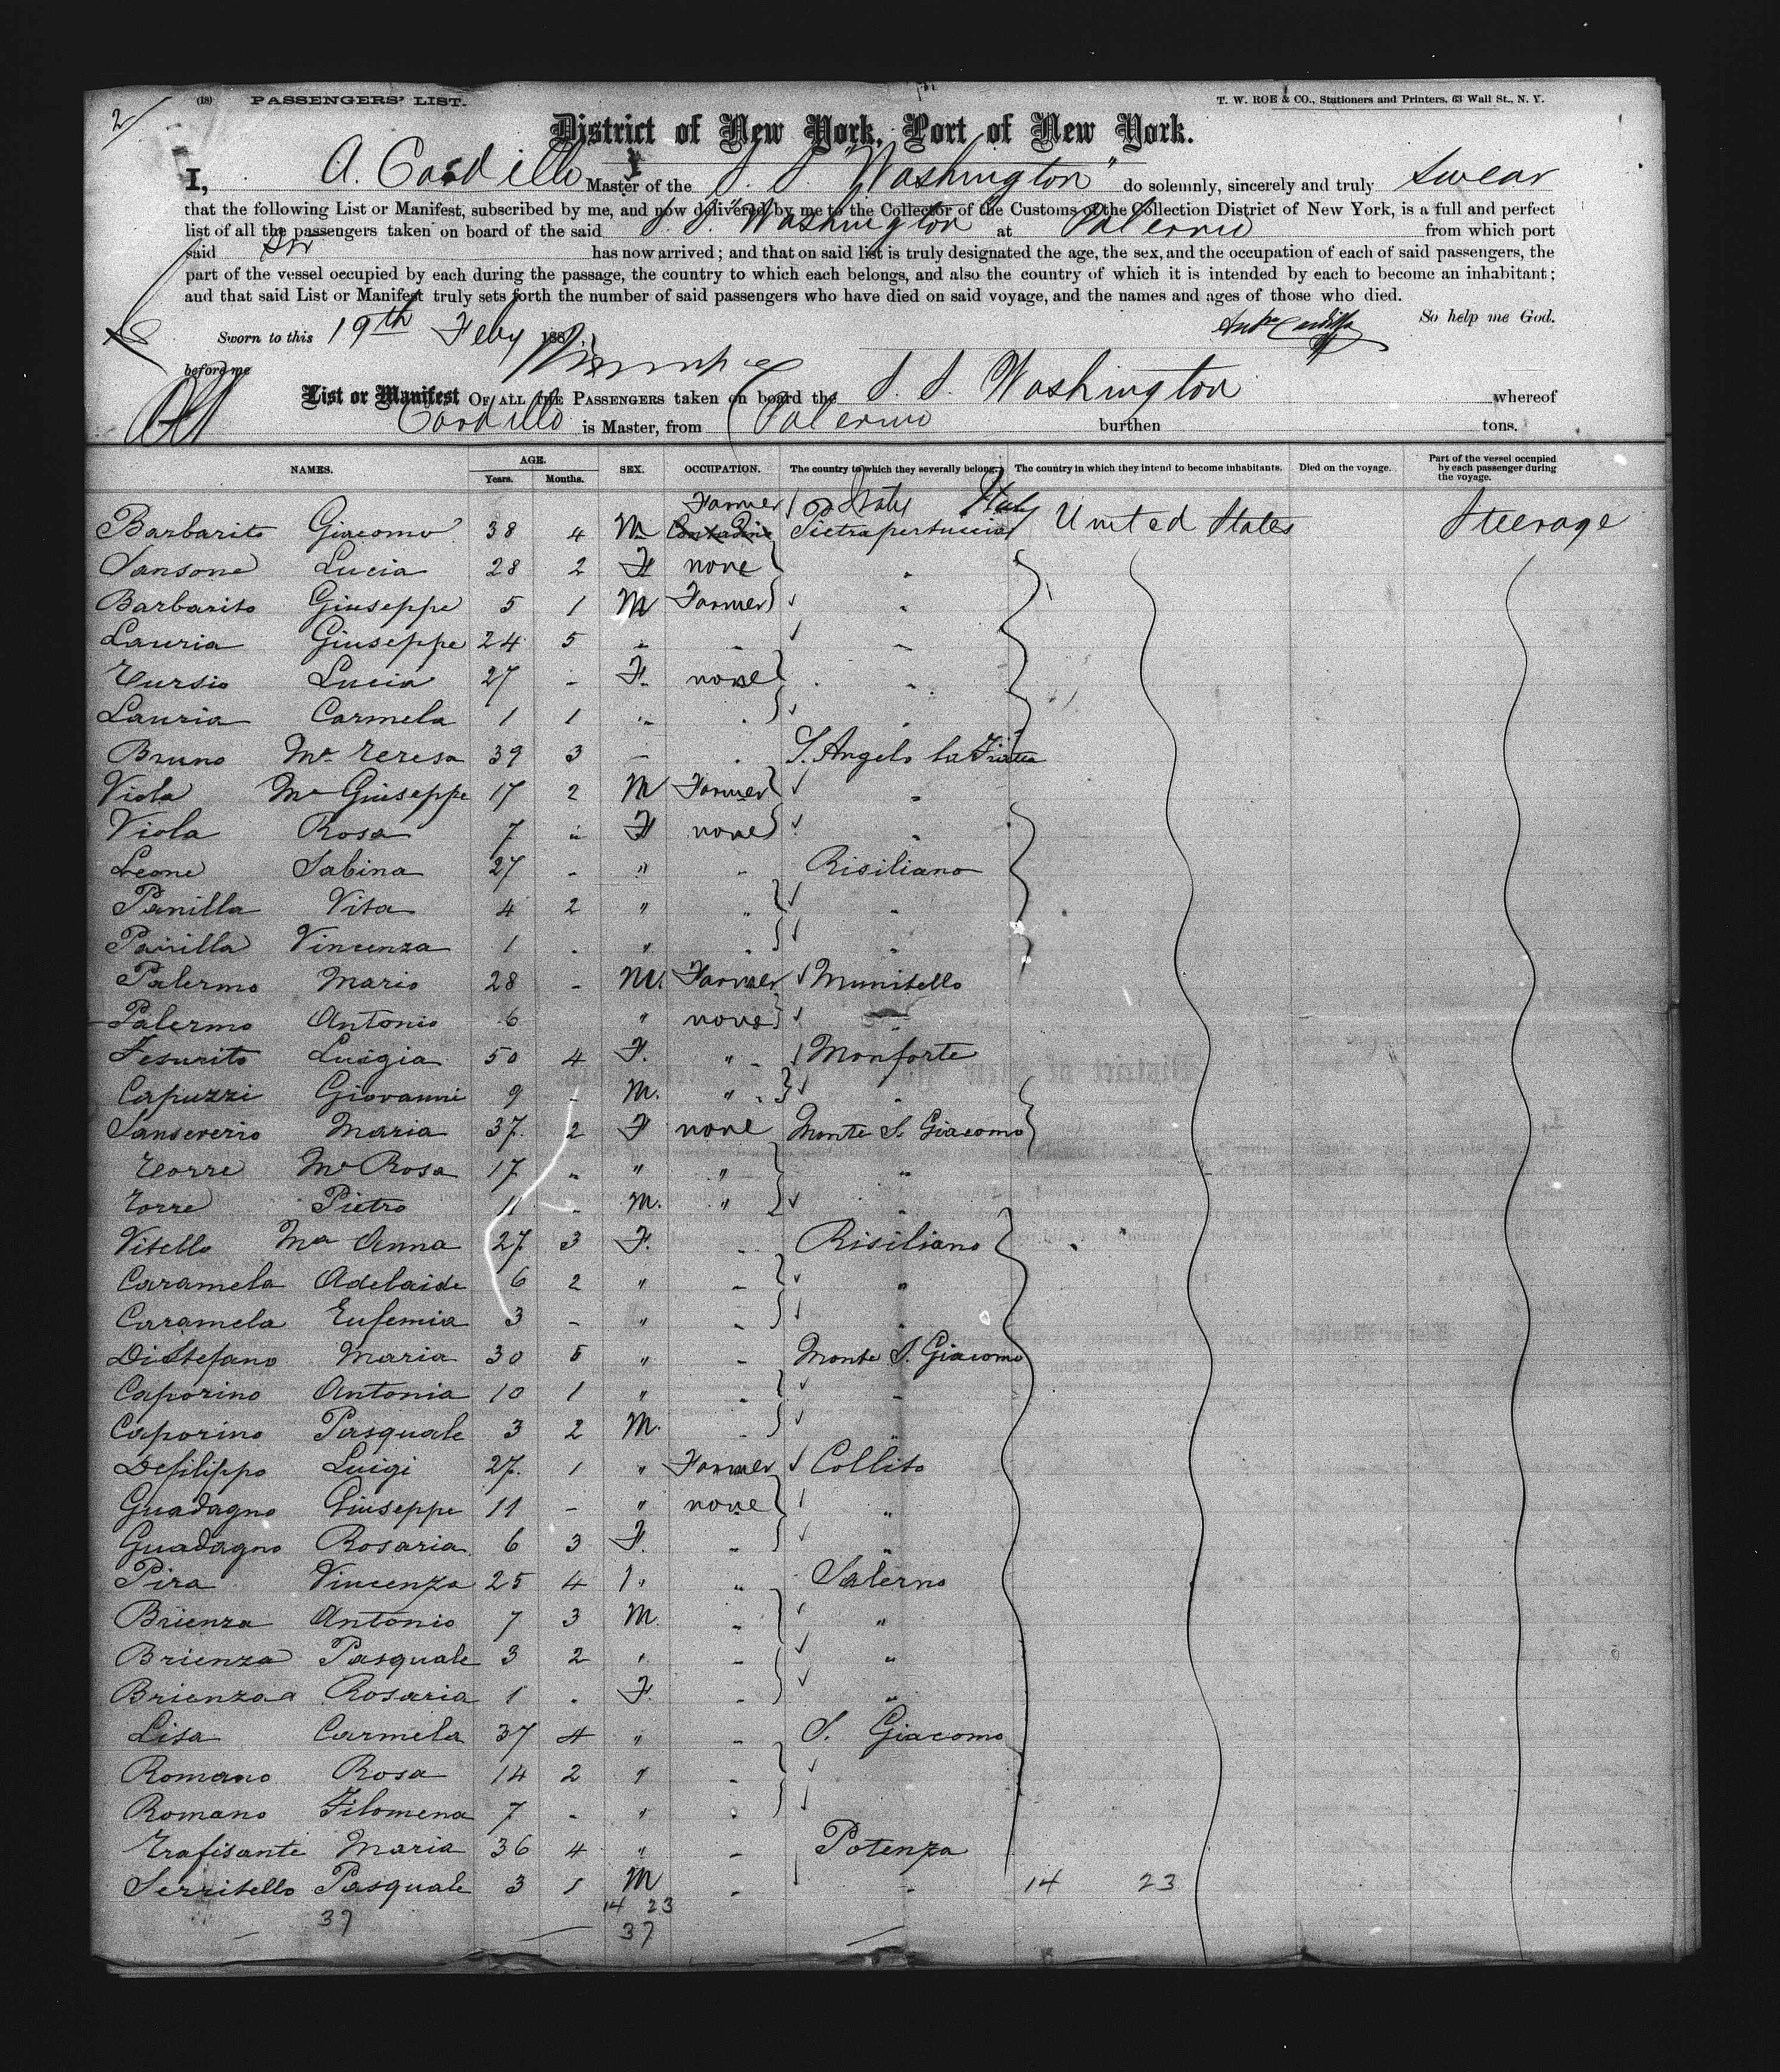 2
(18) PASSENGERS' LIST.
T. W. ROE & CO., Stationers and Printers, 63 Wall St., N. Y.
District of New York, Port of New York.
I, A. Cardillo Master of the S. S. "Washington" do solemnly, sincerely and truly swear
that the following List or Manifest, subscribed by me, and now delivered by me to the Collector of the Customs of the Collection District of New York, is a full and perfect
list of all the passengers taken on board of the said S. S. "Washington" at Palermo from which port
said has now arrived; and that on said list is truly designated the age, the sex, and the occupation of each of said passengers, the
part of the vessel occupied by each during the passage, the country to which each belongs, and also the country of which it is intended by each to become an inhabitant;
and that said List or Manifest truly sets forth the number of said passengers who have died on said voyage, and the names and ages of those who died.
So help me God.
Sworn to this 19th Feby 188
before me
List or Manifest OF ALL THE PASSENGERS taken on board the S. S. Washington whereof
Cardillo is Master, from Palermo burthen tons.
NAMES. AGE. Years. Months. SEX. OCCUPATION. The country to which they severally belong. The country in which they intend to become inhabitants. Died on the voyage. Part of the vessel occupied by each passenger during the voyage.
Farmer Italy
Barbarito Giacomo 38 4 M Contadino Pietrapertuccia United States Steerage
Sansone Lucia 28 2 F none "
Barbarito Giuseppe 5 1 M Farmer "
Lauria Giuseppe 24 5 " " "
Tursio Lucia 27 - F. none "
Lauria Carmela 1 1 " " "
Bruno Ma Teresa 39 3 " " S. Angelo la Fratta
Viola Ma Giuseppe 17 2 M Farmer "
Viola Rosa 7 " F none "
Leone Sabina 27 - " " Risiliano
Panilla Vita 4 2 " " "
Panilla Vincenza 1 - " " "
Palermo Mario 28 - M. Farmer Munitello
Palermo Antonio 6 " none "
Jesurito Luigia 50 4 F. " Monforte
Capuzzi Giovanni 9 - M. " "
Sanseverio Maria 37 2 F none Monte S. Giacomo
Torre Ma Rosa 17 - " " "
Torre Pietro 11 - M. " "
Vitello Ma Anna 27 3 F. " Risiliano
Caramela Adelaide 6 2 " " "
Caramela Eufemia 3 - " " "
Di Stefano Maria 30 5 " " Monte S. Giacomo
Caporino Antonia 10 1 " " "
Caporino Pasquale 3 2 M. " "
Defilippo Luigi 27 1 " Farmer Collito
Guadagno Giuseppe 11 - " none "
Guadagno Rosaria 6 3 F. " "
Pira Vincenza 25 4 " " Salerno
Brienza Antonio 7 3 M. " "
Brienza Pasquale 3 2 " " "
Brienza Rosaria 1 - F. " "
Lisa Carmela 37 4 " " S. Giacomo
Romano Rosa 14 2 " "
Romano Filomena 7 - " "
Trafisante Maria 36 4 " " Potenza
Serritello Pasquale 3 5 M " " 14 23
14 23
37 37